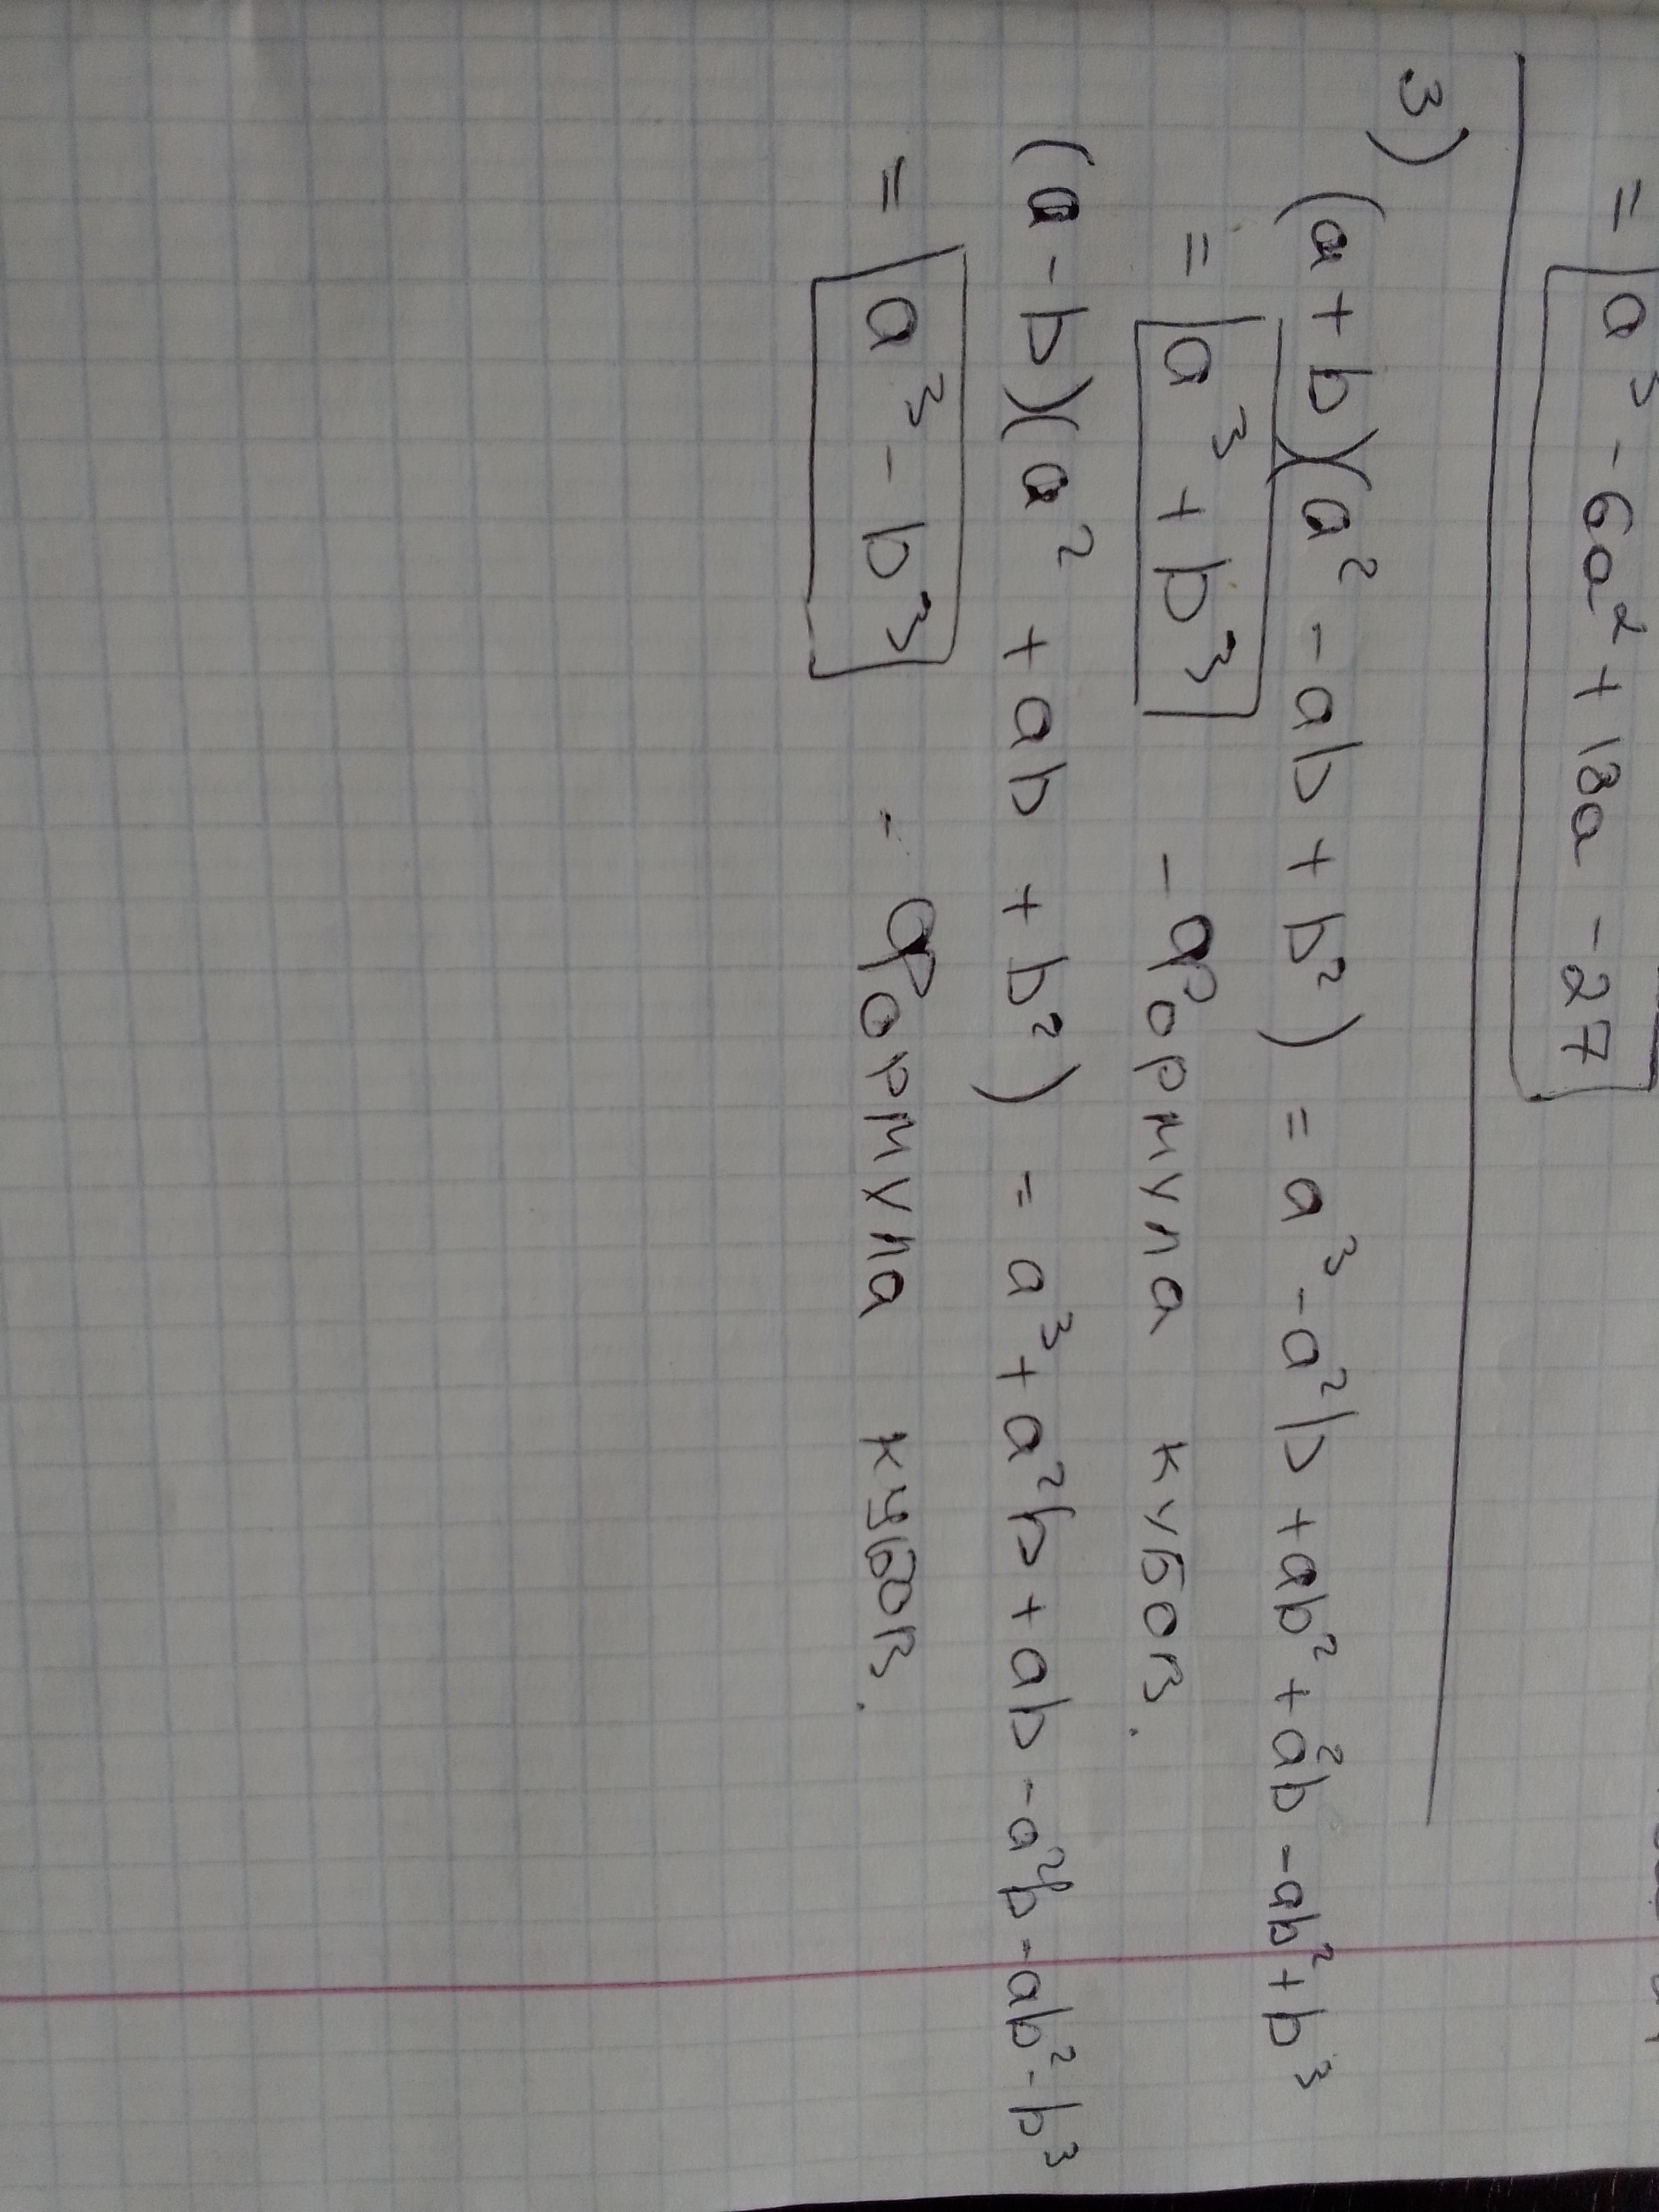 = a³ - 6a² + 18a - 27
3) (a + b)(a² - ab + b²) = a³ - a²b + ab² + a²b - ab² + b³
= a³ + b³ - формула кубов.
(a - b)(a² + ab + b²) = a³ + a²b + ab - a²b - ab² - b³
= a³ - b³ - формула кубов.